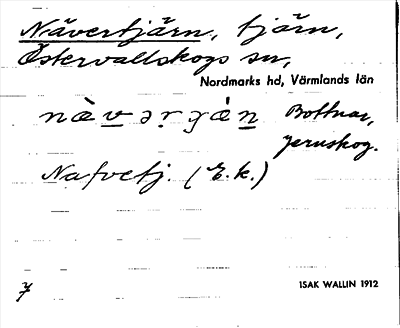 Nävertjärn, tjärn,
Östervallskogs sn,
Nordmarks hd, Värmlands län
Bottnar,
Jernskog.
Nafvetj. (E.k.)
7
ISAK WALLIN 1912